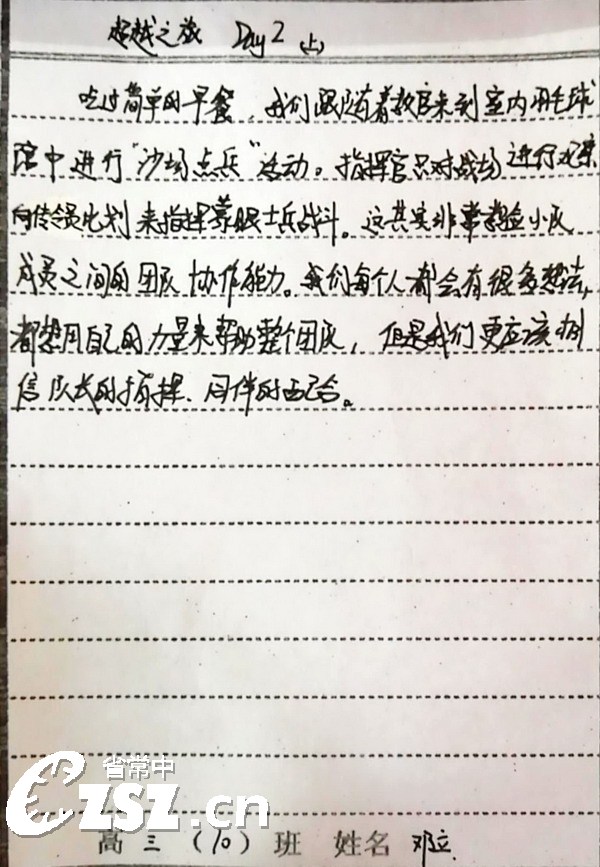 超越之旅 Day2 (上)
吃过简单的早餐，我们跟随着教官来到室内羽毛球
馆中进行“沙场点兵”活动。指挥官只对战场进行观察
向传令员比划来指挥蒙眼士兵战斗。这其实非常考验小队
成员之间的团队协作能力。我们每个人都会有很多想法，
都想用自己的力量来帮助整个团队，但是我们更应该相
信队长的指挥、同伴的配合。
省常中
CZSZ.cn
高三(10)班 姓名 邓立